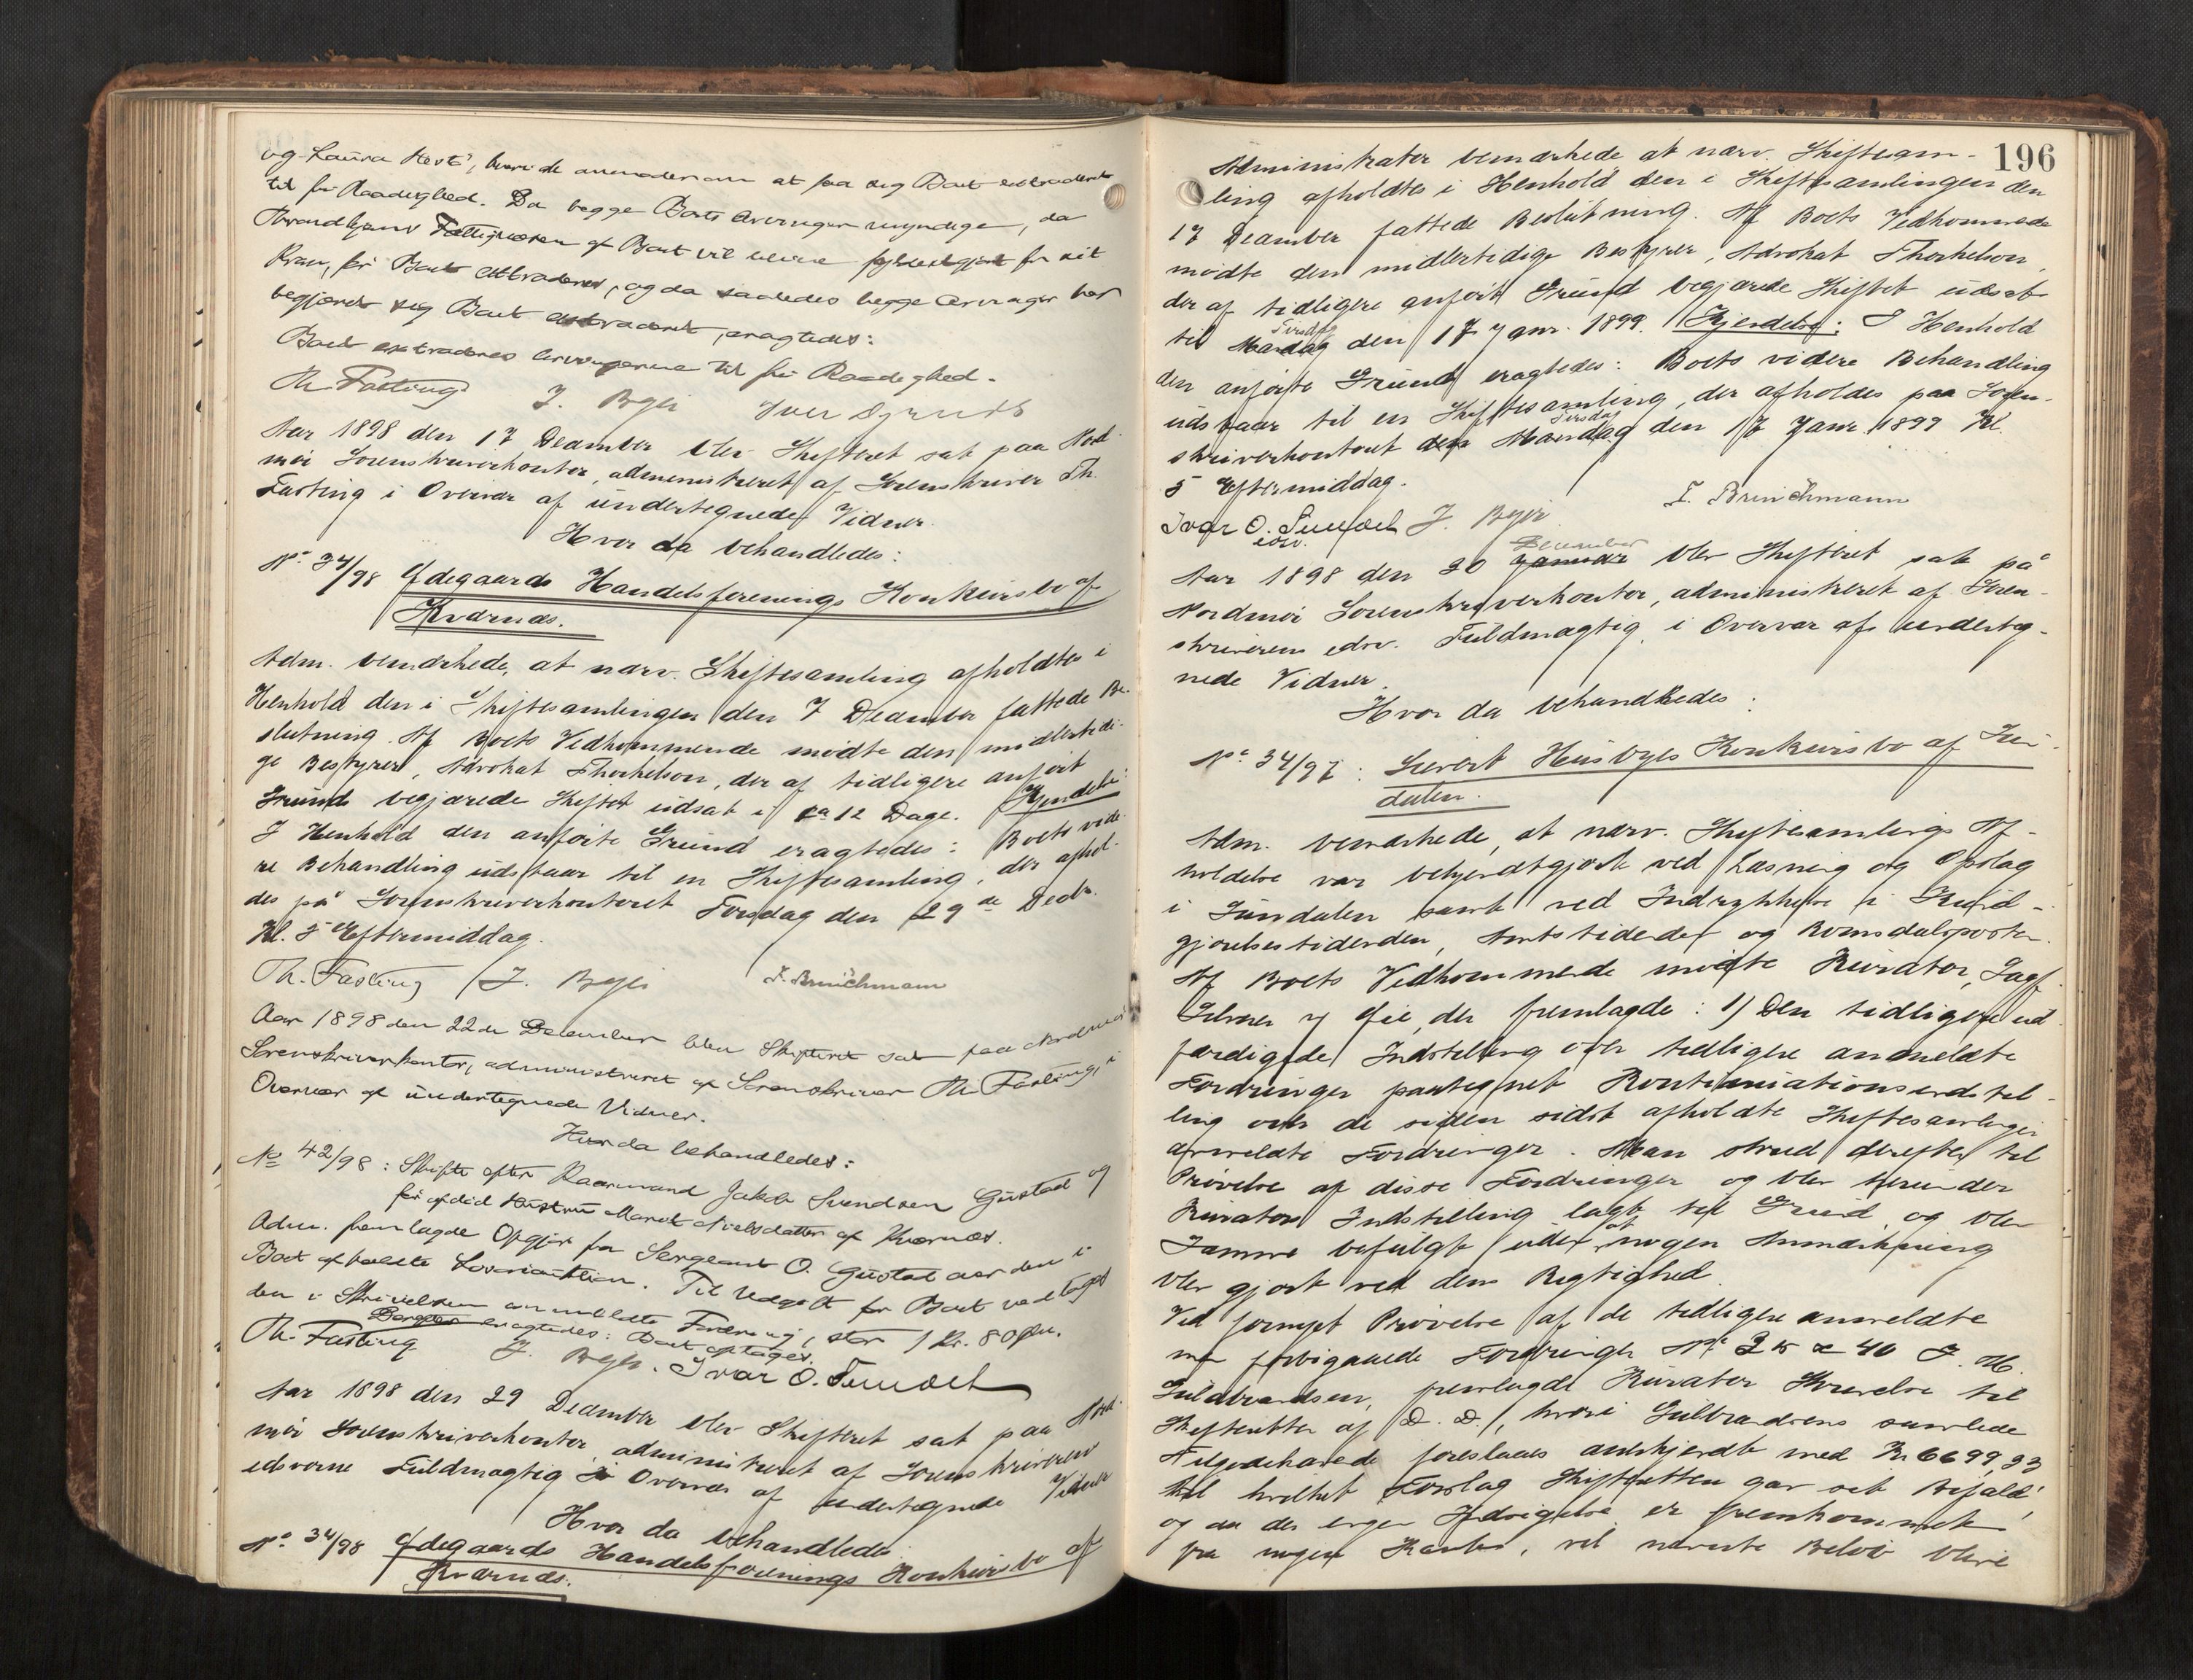 og Laura Hest', hvori de anmoder om at faa sig Boet extraderet
til fri Raadighed. Da begge Boets Arvinger er myndige, da
Throndhjems Fattigvæsen af Boet vil blive fyldestgjort for sit
Krav, før Boet extraderes, og da saaledes begge Arvinger har
begjæret sig Boet extraderet, eragtedes:
Boet extraderes Arvingerne til fri Raadighed.
Th. Fasting J. Bgli
Aar 1898 den 17 December blev Skifteret sat paa Nord-
mør Sorenskriverkontor, administreret af Sorenskriver Th.
Fasting i Overvær af undertegnede Vidner.
Hvor da behandledes:
No. 34/98 Ødegaards Handelsforenings Konkursbo af
Kværnæs.
Adm. bemærkede, at nærv. Skiftesamling afholdtes i
Henhold den i Skiftesamlingen den 7 December fattede Be-
slutning. Af Boets Vedkommende mødte den midlertidi-
ge Bestyrer, Advokat Thorkelson, der af tidligere anført
Grund begjærede Skiftet udsat i ca 12 Dage. Kjendelse:
I Henhold den anførte Grund eragtedes: Boets vide-
re Behandling udstaar til en Skiftesamling, der afhol-
des på Sorenskriverkontoret Torsdag den 29de Decbr.
Kl. 5 Eftermiddag.
Th. Fasting J. Bgli I. Brinchmann
Aar 1898 den 22de December blev Skifteret sat paa Nordmør
Sorenskriverkontor, administreret af Sorenskriver Th. Fasting, i
Overvær af undertegnede Vidner.
Hvor da behandledes:
No 42/98: Skifte efter Kaarmand Jakob Svendsen Gustad og
før afdød Hustru Marit Nielsdatter af Kværnæs.
Adm. fremlagde Opgjør fra Sergeant O. Gustad over den i
Boet afholdte Løsøreauktion. Til Udgift for Boet vedtages
den i Skrivelsen anmeldte Fordring, stor 1 Kr. 80 Øre.
eragtedes: Boet optages.
Th. Fasting J. Bgli. Ivar O.
Aar 1898 den 29 December blev Skifteret sat paa Nord-
mør Sorenskriverkontor, administreret af Sorenskriverens
edsvorne Fuldmægtig i Overvær af undertegnede Vidner
Hvor da behandledes
No. 34/98 Ødegaards Handelsforenings Konkursbo af
Kværnæs.
196
Administrator bemærkede at nærv. Skiftesam-
ling afholdtes i Henhold den i Skiftesamlingen den
17 December fattede Beslutning. Af Boets Vedkommende
mødte den midlertidige Bestyrer, Advokat Thorkelson,
der af tidligere anført Grund begjærede Skiftet udsat
til Mandag Tirsdag den 17 Janr. 1899. Kjendelse: I Henhold
den anførte Grund eragtedes: Boets videre Behandling
udstaar til en Skiftesamling, der afholdes paa Soren-
skriverkontoret den Mandag Tirsdag den 17 Janr. 1899 Kl.
5 Eftermiddag.
I. Brinchmann
Ivar O. J. Bgli
edsv.
Aar 1898 den 30 Januar December blev Skifteret sat på
Nordmør Sorenskriverkontor, administreret af Soren-
skriverens edsv. Fuldmægtig i Overvær af underteg-
nede Vidner.
Hvor da behandledes:
No. 34/97: Sivert Husbyes Konkursbo af Sun-
dalen.
Adm. bemærkede, at nærv. Skiftesamlings Af-
holdelse var bekjendtgjort ved Læsning og Opslag
i Sundalen samt ved Indrykkelse i Kund-
gjørelsestidenden, Amtstidende og Romsdalsposten.
Af Boets Vedkommende mødte Kurator, Sagf.
der fremlagde: 1) Den tidligere ud-
færdigede Indstilling over tidligere anmeldte
Fordringer paategnet Kontinuationsindstil-
ling over de siden sidst afholdte Skiftesamlinger
anmeldte Fordringer. Man skred derefter til
Prøvelse af disse Fordringer og blev herunder
Kurators Indstilling lagt til Grund og blev
Samme befulgt uden at nogen Anmærkning
blev gjort ved dens Rigtighed.
Ved fornyet Prøvelse af de tidligere anmeldte
men forbigaaede Fordringer No 2 &amp; 40 J. M.
Gulbrandsen, fremlagde Kurator Skrivelse til
Skifteretten af D. D., hvori Gulbrandsens samlede
Tilgodehavende foreslaaes anerkjendt med Kr. 6699,33
til hvilket Forslag Skifteretten gav sit Bifald,
og da der ingen Indsigelse er fremkommet
fra nogen Kant, vil nævnte Beløb blive